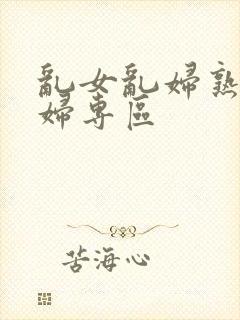 亂女亂婦熟
婦專區
苦海心